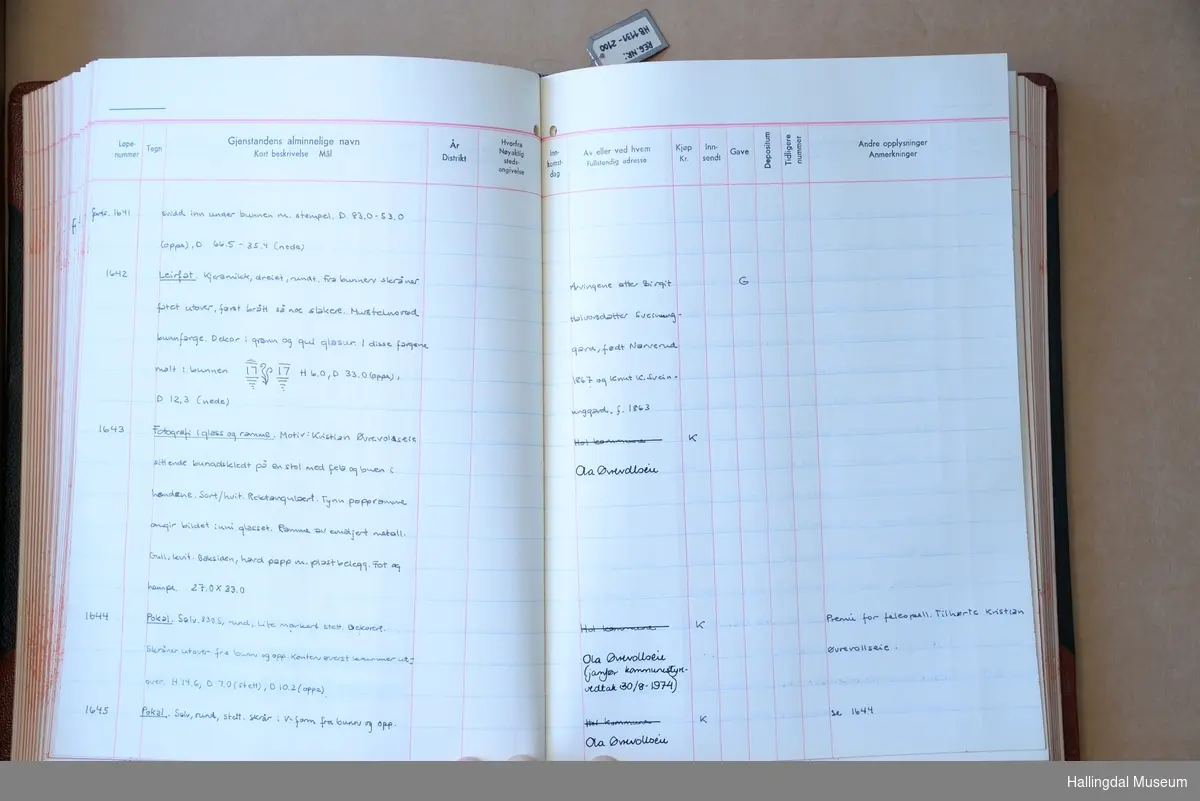 REG.NR:
HB 1131 - 2100
Løpe-nummer
Tegn
Gjenstandens alminnelige navn
Kort beskrivelse Mål
År
Distrikt
Hvorfra
Nøyaktig
steds-
angivelse
Inn-
komst-
dag
Av eller ved hvem
Fullstendig adresse
Kjøp
Kr.
Inn-
sendt
Gave
Depositum
Tidligere
nummer
Andre opplysninger
Anmerkninger
forts. 1641
svidd inn under bunnen m. stempel. D 83.0 - 53.0
(oppe), D 66.5 - 35.4 (nede)
1642
Leirfat. Kjeramikk, dreiet, rundt. Fra bunnen skråner
fatet utover, først brått så noe slakere. Murstelnsrød
bunnfarge. Dekor i grønn og gul glasur. I disse fargene
malt i bunnen 17 17 H 6.0, D 33.0 (oppe),
D 12,3 (nede)
Arvingene etter Birgit
Halvorsdatter Sveinung-
gard, født Nørverud
1867 og Knut K. Svein-
unggard, f. 1863
G
1643
Fotografi i glass og ramme. Motiv: Kristian Øvrevollseie
sittende bunadskledt på en stol med fele og buen i
hendene. Sort/hvit. Rektangulært. Tynn pappramme
omgir bildet inni glasset. Ramme av emaljert metall.
Gull, hvit. Baksiden, hard papp m. plastbelegg. Fot og
hempe. 27.0 x 33.0
Hol kommune
Ola Øvrevollseie
K
1644
Pokal. Sølv. 830 S, rund, Lite markert stett. Dekorert.
Skråner utover fra bunn og opp. Kanten øverst krummer ut-
over. H 14,6, D 7.0 (stett), D 10.2 (oppe)
Hol kommune
Ola Øvrevollseie
(jamfør kommunestyre-
vedtak 30/8-1974)
K
Premie for felespell. Tilhørte Kristian
Øvrevollseie.
1645
Pokal. Sølv, rund, stett. Skrår i V-form fra bunn og opp.
Hol kommune
Ola Øvrevollseie
K
se 1644
Hallingdal Museum